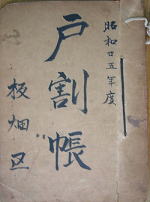 昭和廿五年度
戸割帳
板畑区